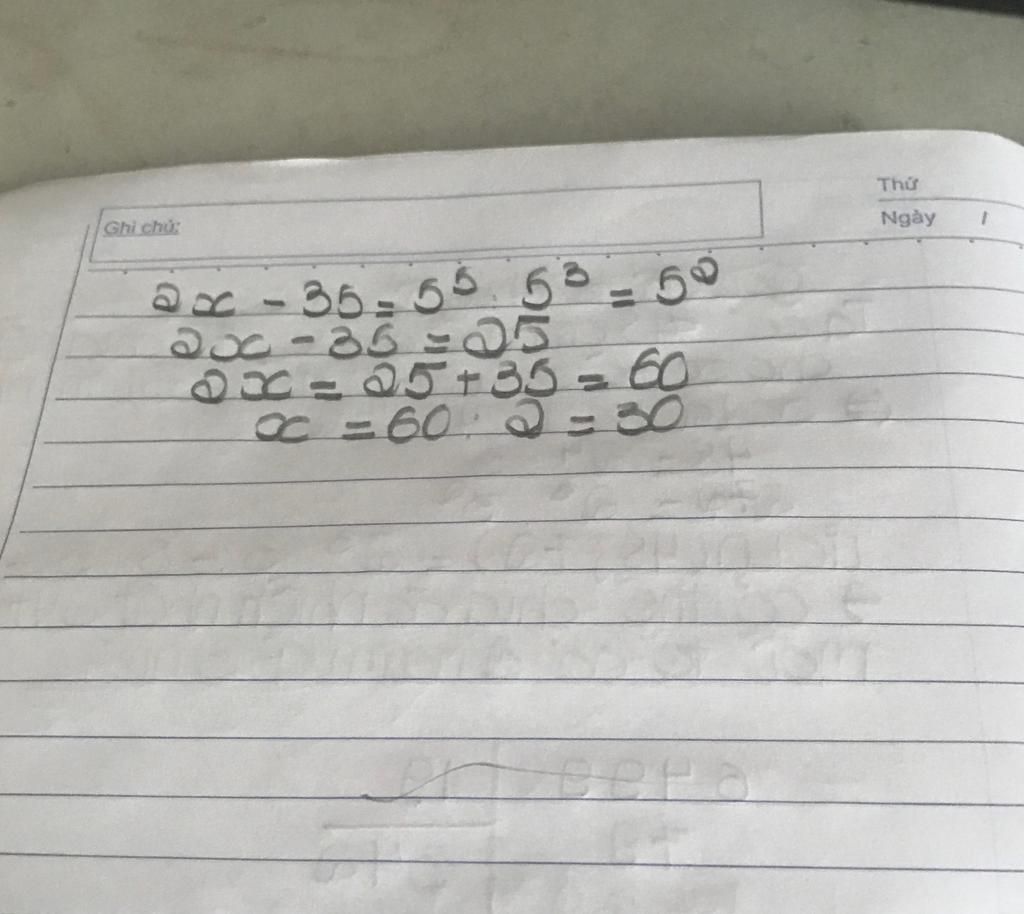 Ghi chú:
Thứ
Ngày /
2x - 35 = 5⁵ : 5³ = 5²
2x - 35 = 25
2x = 25 + 35 = 60
x = 60 : 2 = 30